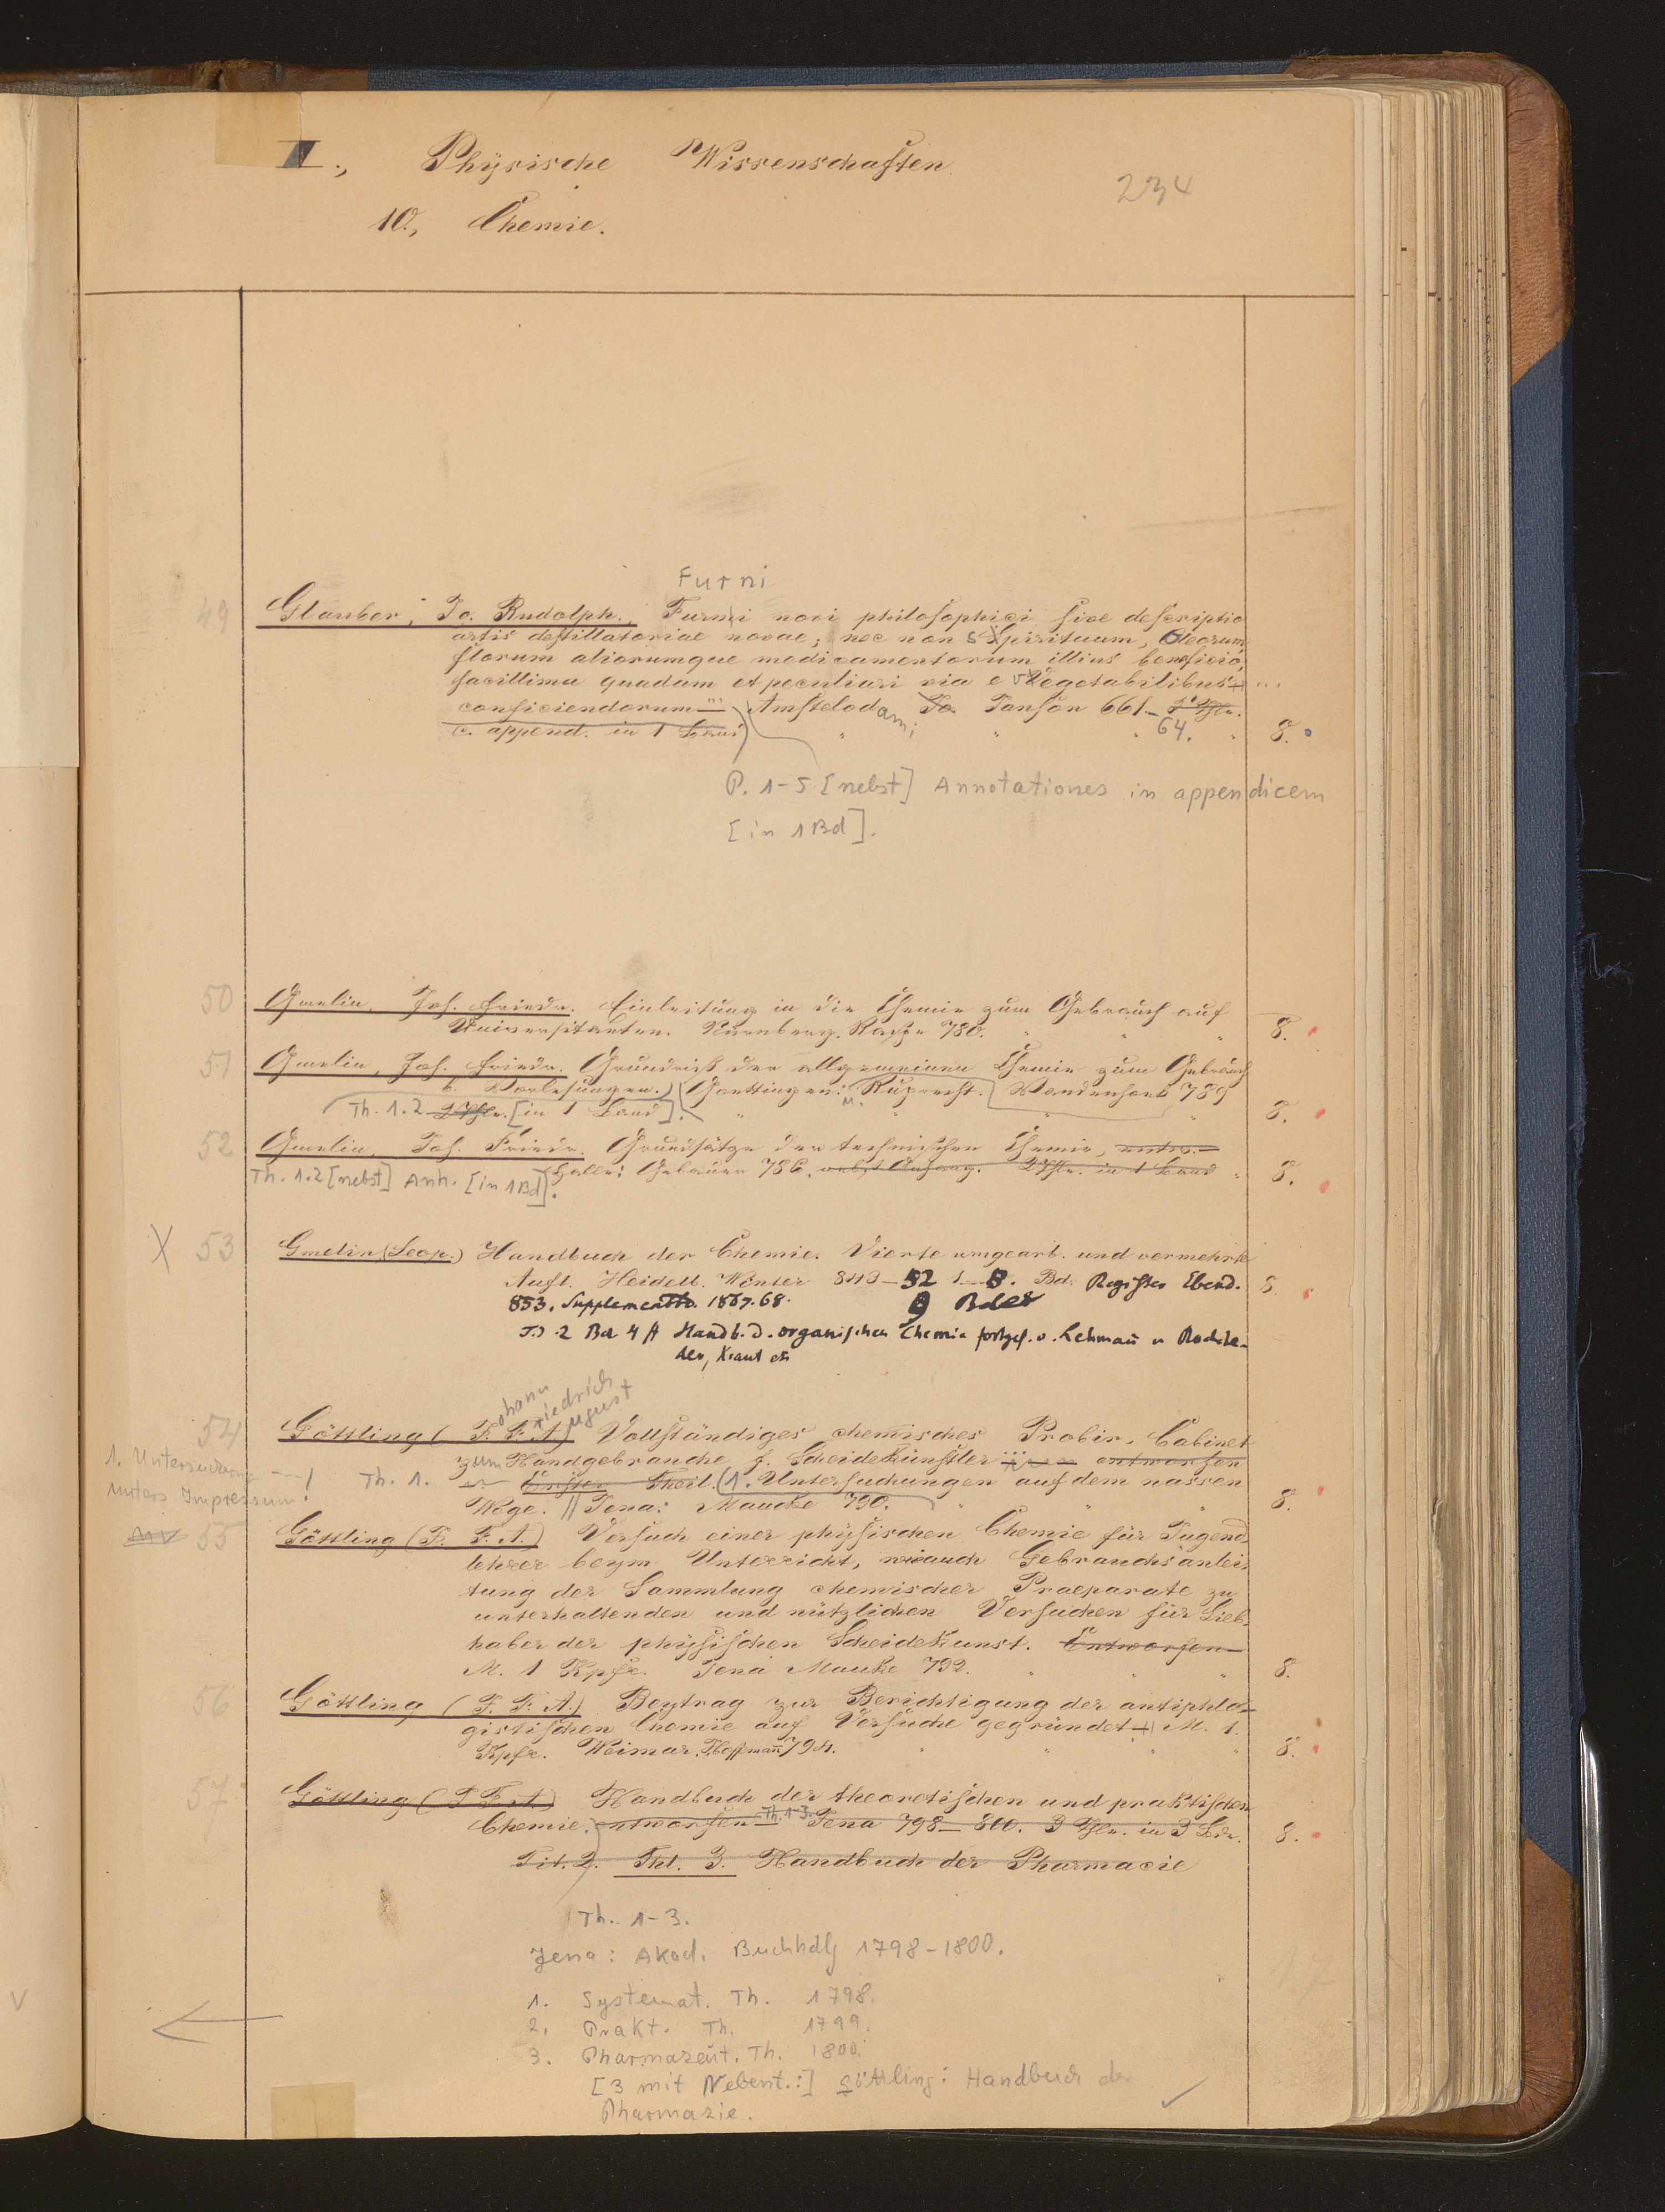 II., Physische Wissenschaften.
234
10., Chemie.
Furni
49 Glauber, Jo. Rudolph., Furni novi philosophici sive descriptio
artis destillatoriae novae; nec non Spirituum, Oleorum,
florum aliorumque medicamentorum illius beneficio,
facillima quadam et peculiari via e Vegetabilibus ...
conficiendorum Amstelodami Jo. Jansön 661-
64.
c. append. in 1 Band 8.
P. 1-5 [nebst] Annotationes in appendicem
[in 1 Bd].
50 Gmelin, Joh. Friedr. Einleitung in die Chemie zum Gebrauch auf
Universitaeten. Nürnberg. Raspe 780. 8.
51 Gmelin, Joh. Friedr. Grundriss der allgemeinen Chemie zum Gebrauch
b. Vorlesungen. Goettingen: Ruprecht. Vandenhoek 789
Th. 1.2 2 Thle. [in 1 Band]. 8.
52 Gmelin, Joh. Friedr. Grundsätze der technischen Chemie,
Halle: Gebauer 786. nebst Anhang. 2 Thle. in 1 Band 8.
Th. 1.2 [nebst] Anh. [in 1 Bd].
X 53 Gmelin (Leop.) Handbuch der Chemie. Vierte umgearb. und vermehrte
Aufl. Heidelb. Winter 843-52 1-8. Bd. Register Ebend. 8.
853. Supplement 1867.68. 9 Bde
2 Bd 4 A Handb. d. organischen Chemie fortges. v. Lehmañ u Rochle-
der, Kraut etc
ohann
riedrich
ugust
54 Göttling (J. F. A.) Vollständiges chemisches Probir-Cabinet
zum Handgebrauche f. Scheidekünstler entworfen
1. Untersuchung --!
unters Impressum!
Th. 1. Erster Theil. (1. Untersuchungen auf dem nassen
Wege. || Jena: Maucke 790. 8.
55 Göttling (J. F. A.) Versuch einer physischen Chemie für Jugend-
lehrer beym Unterricht, wie auch Gebrauchsanlei-
tung der Sammlung chemischer Praeparate zu
unterhaltenden und nützlichen Versuchen für Lieb-
haber der physischen Scheidekunst. Entworfen
M. 1 Kpfr. Jena Mauke 792. 8.
56 Göttling (J. F. A.) Beytrag zur Berichtigung der antiphlo-
gistischen Chemie auf Versuche gegründet M. 1.
Kpfr. Weimar. Hoffmañ 794. 8.
57 Göttling (J. F. A.) Handbuch der theoretischen und praktischen
Chemie. entworfen Th. 1-3. Jena 798-800. 3 Thle. in 3 Bde. 8.
Tit. 2. Thl. 3. Handbuch der Pharmacie
Th. 1-3.
Jena: Akad. Buchhdlg 1798-1800.
1. Systemat. Th. 1798.
2. Prakt. Th. 1799.
3. Pharmazeut. Th. 1800.
[3 mit Nebent.:] Göttling: Handbuch der
Pharmazie.